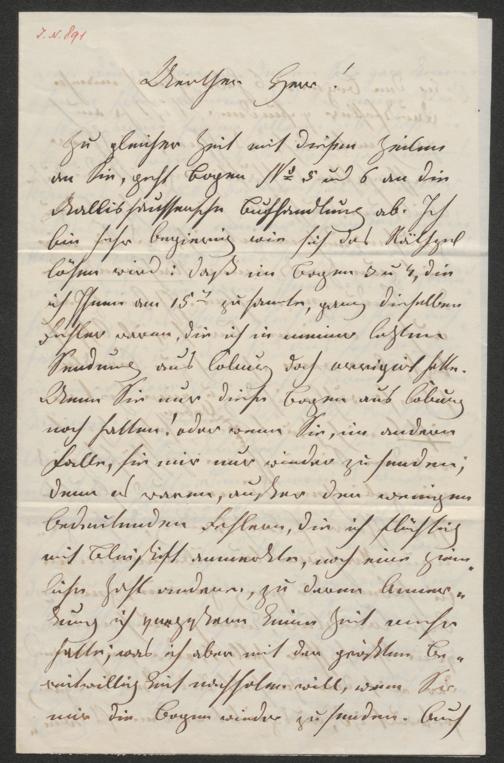 J. N. 891
Werther Herr!
Zu gleicher Zeit mit diesen Zeilen
an Sie, geht Bogen No 5 und 6 an die
Wallishaussersche Buchhandlung ab. Ich
bin sehr begierig wie sich das Räthsel
lösen wird: daß im Bogen 3 u 4, die
ich Ihnen am 15t zusandte, ganz dieselben
Fehler waren, die ich in meiner letzten
Sendung aus Coburg doch corrigirt hatte.
Wenn Sie nur diese Bogen aus Coburg
noch hätten! oder wenn Sie, im andern
Falle, sie mir nur wieder zusenden;
denn es waren, außer den wenigen
bedeutenden Fehlern, die ich flüchtig
mit Bleistift anmerkte, noch eine ziem„
liche Zahl anderer, zu deren Anmer„
kung ich gestern keine Zeit mehr
hatte; was ich aber mit der größten Be„
reitwilligkeit nachholen will, wenn Sie
mir die Bogen wieder zusenden. Auch